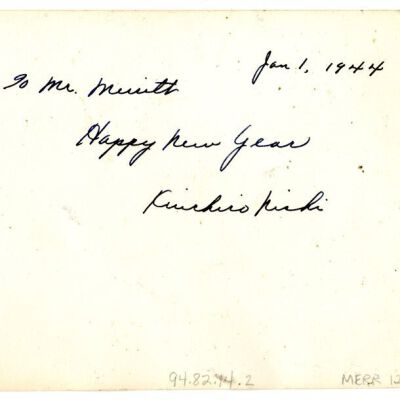 Jan 1, 1944
To Mr. Merritt
Happy New Year
Kuichiro Nishi
94.82.14.2
MERR 12